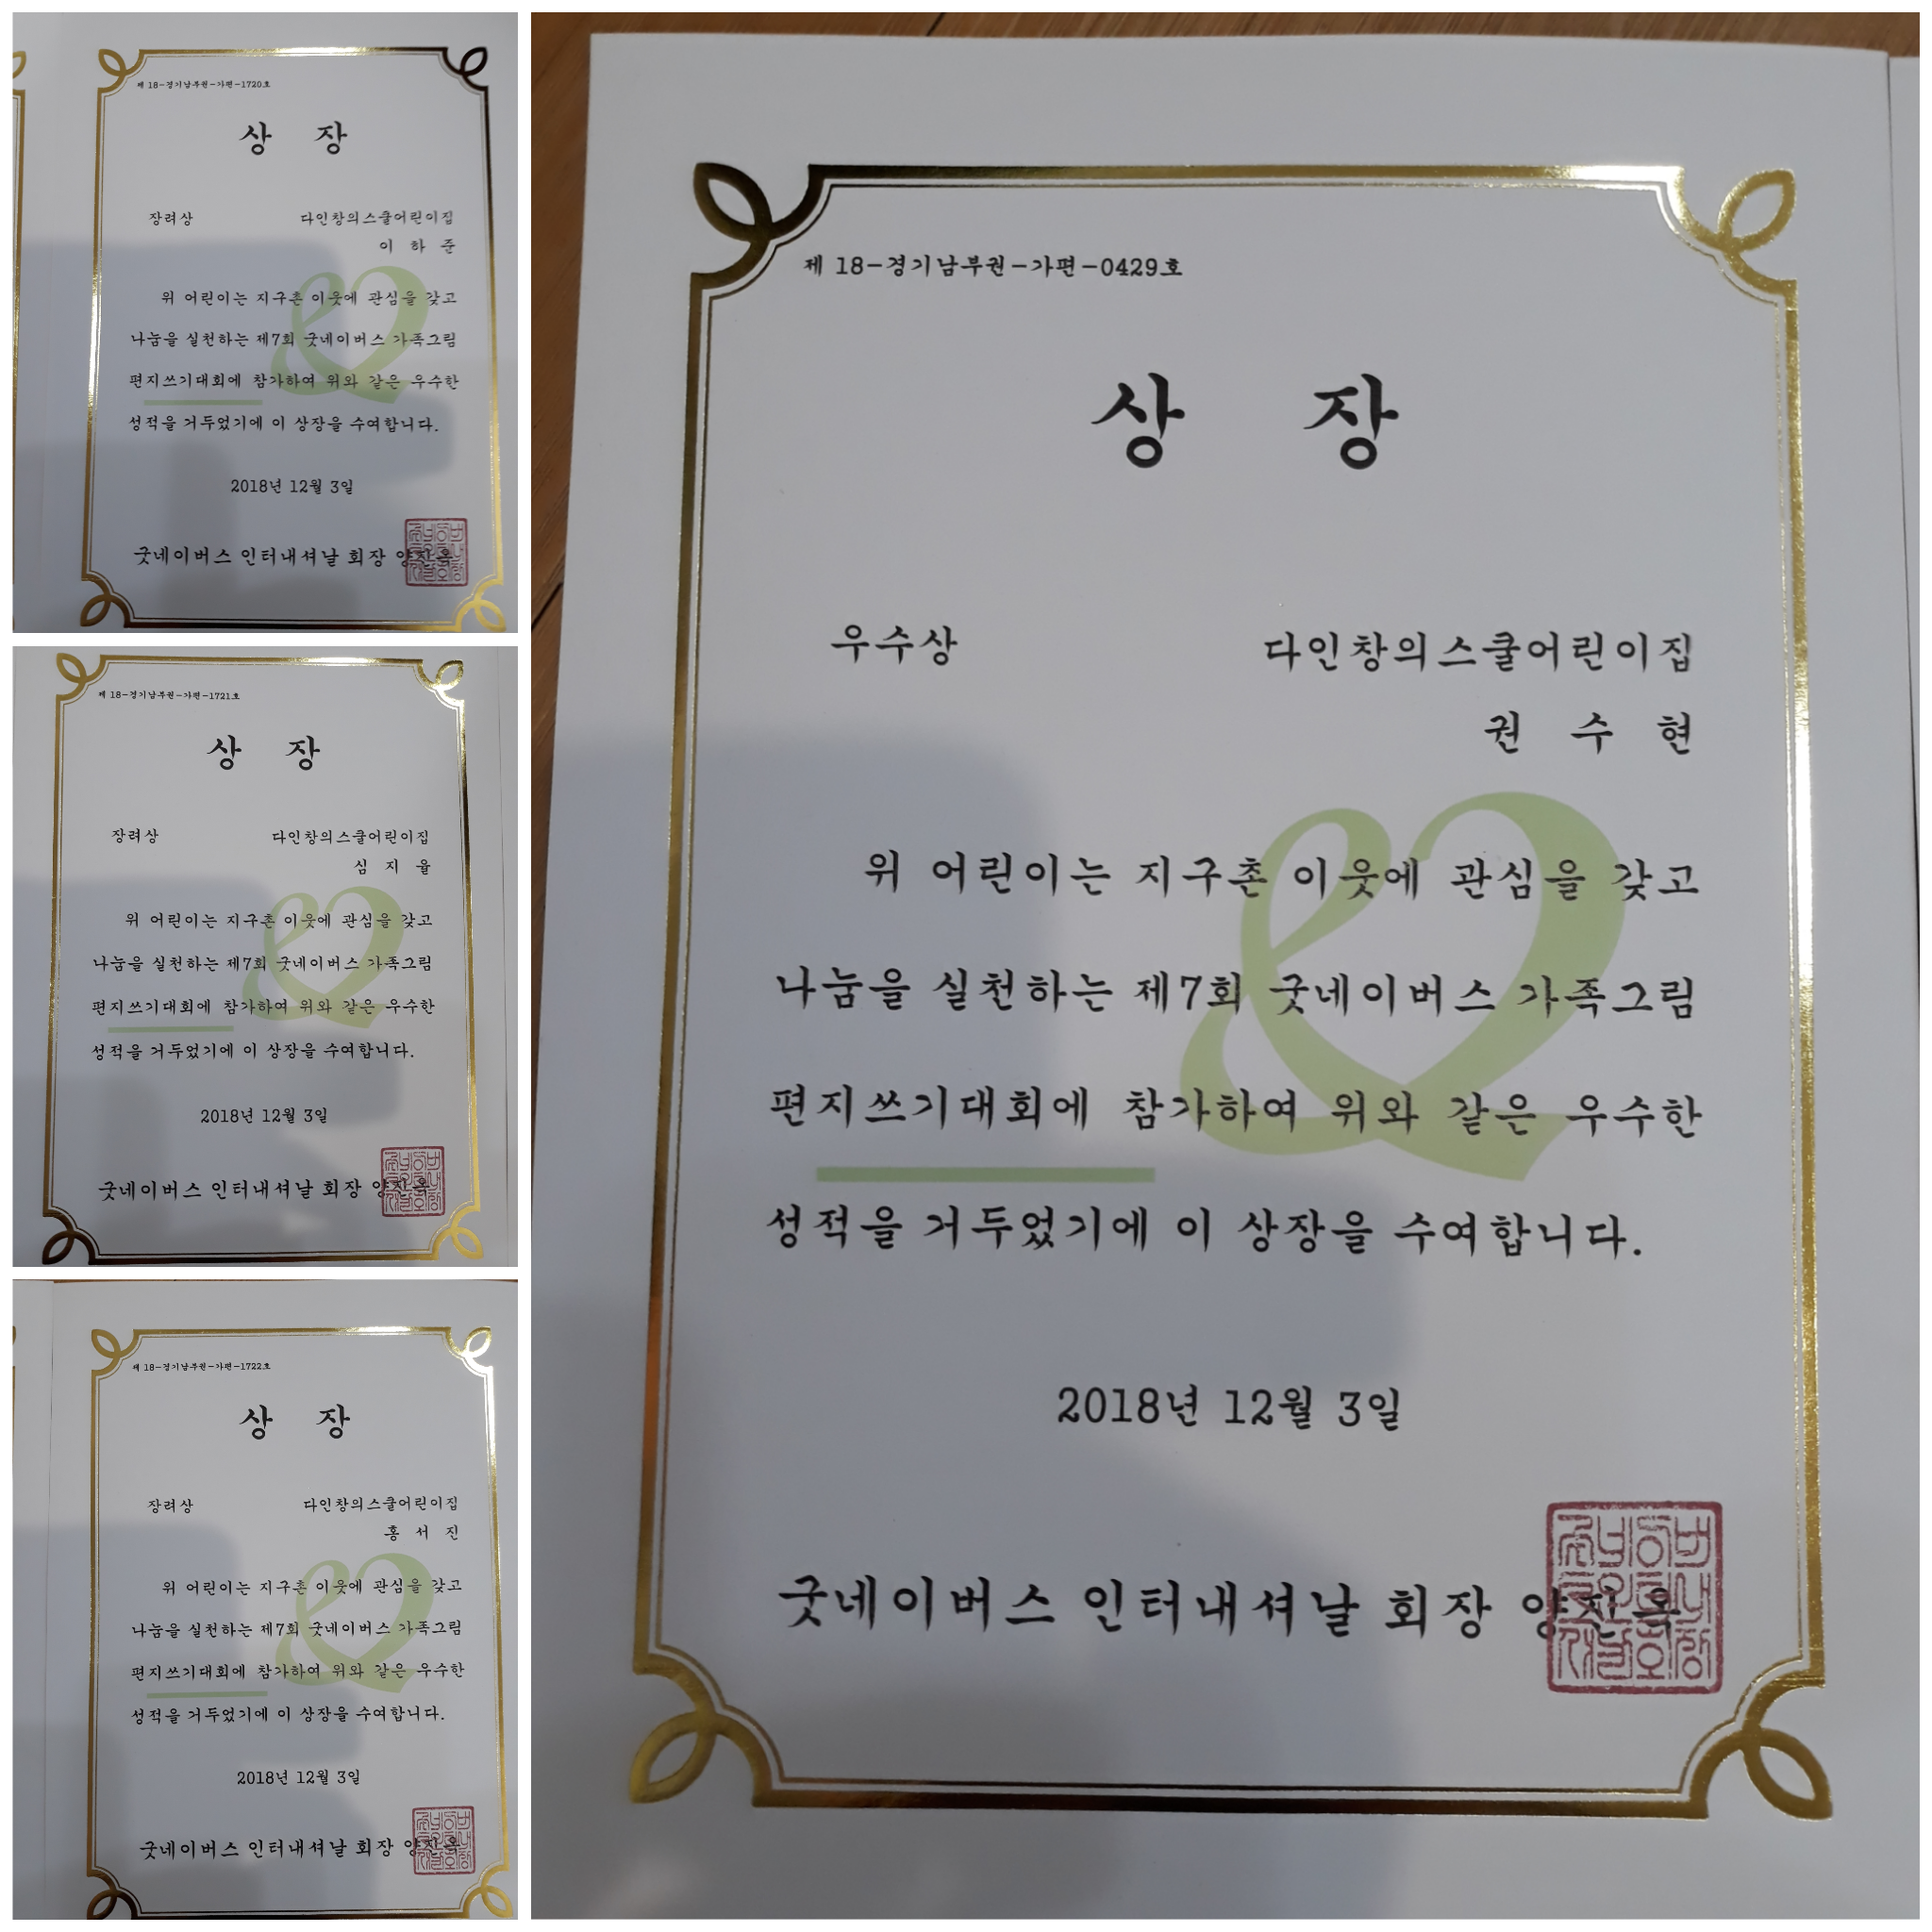 제 18-경기남부권-가편-1720호
상 장
장려상 다인창의스쿨어린이집
이 하 준
위 어린이는 지구촌 이웃에 관심을 갖고
나눔을 실천하는 제7회 굿네이버스 가족그림
편지쓰기대회에 참가하여 위와 같은 우수한
성적을 거두었기에 이 상장을 수여합니다.
2018년 12월 3일
굿네이버스 인터내셔날 회장 양진옥
제 18-경기남부권-가편-1721호
상 장
장려상 다인창의스쿨어린이집
심 지 율
위 어린이는 지구촌 이웃에 관심을 갖고
나눔을 실천하는 제7회 굿네이버스 가족그림
편지쓰기대회에 참가하여 위와 같은 우수한
성적을 거두었기에 이 상장을 수여합니다.
2018년 12월 3일
굿네이버스 인터내셔날 회장 양진옥
제 18-경기남부권-가편-1722호
상 장
장려상 다인창의스쿨어린이집
홍 서 진
위 어린이는 지구촌 이웃에 관심을 갖고
나눔을 실천하는 제7회 굿네이버스 가족그림
편지쓰기대회에 참가하여 위와 같은 우수한
성적을 거두었기에 이 상장을 수여합니다.
2018년 12월 3일
굿네이버스 인터내셔날 회장 양진옥
제 18-경기남부권-가편-0429호
상 장
우수상 다인창의스쿨어린이집
권 수 현
위 어린이는 지구촌 이웃에 관심을 갖고
나눔을 실천하는 제7회 굿네이버스 가족그림
편지쓰기대회에 참가하여 위와 같은 우수한
성적을 거두었기에 이 상장을 수여합니다.
2018년 12월 3일
굿네이버스 인터내셔날 회장 양진옥